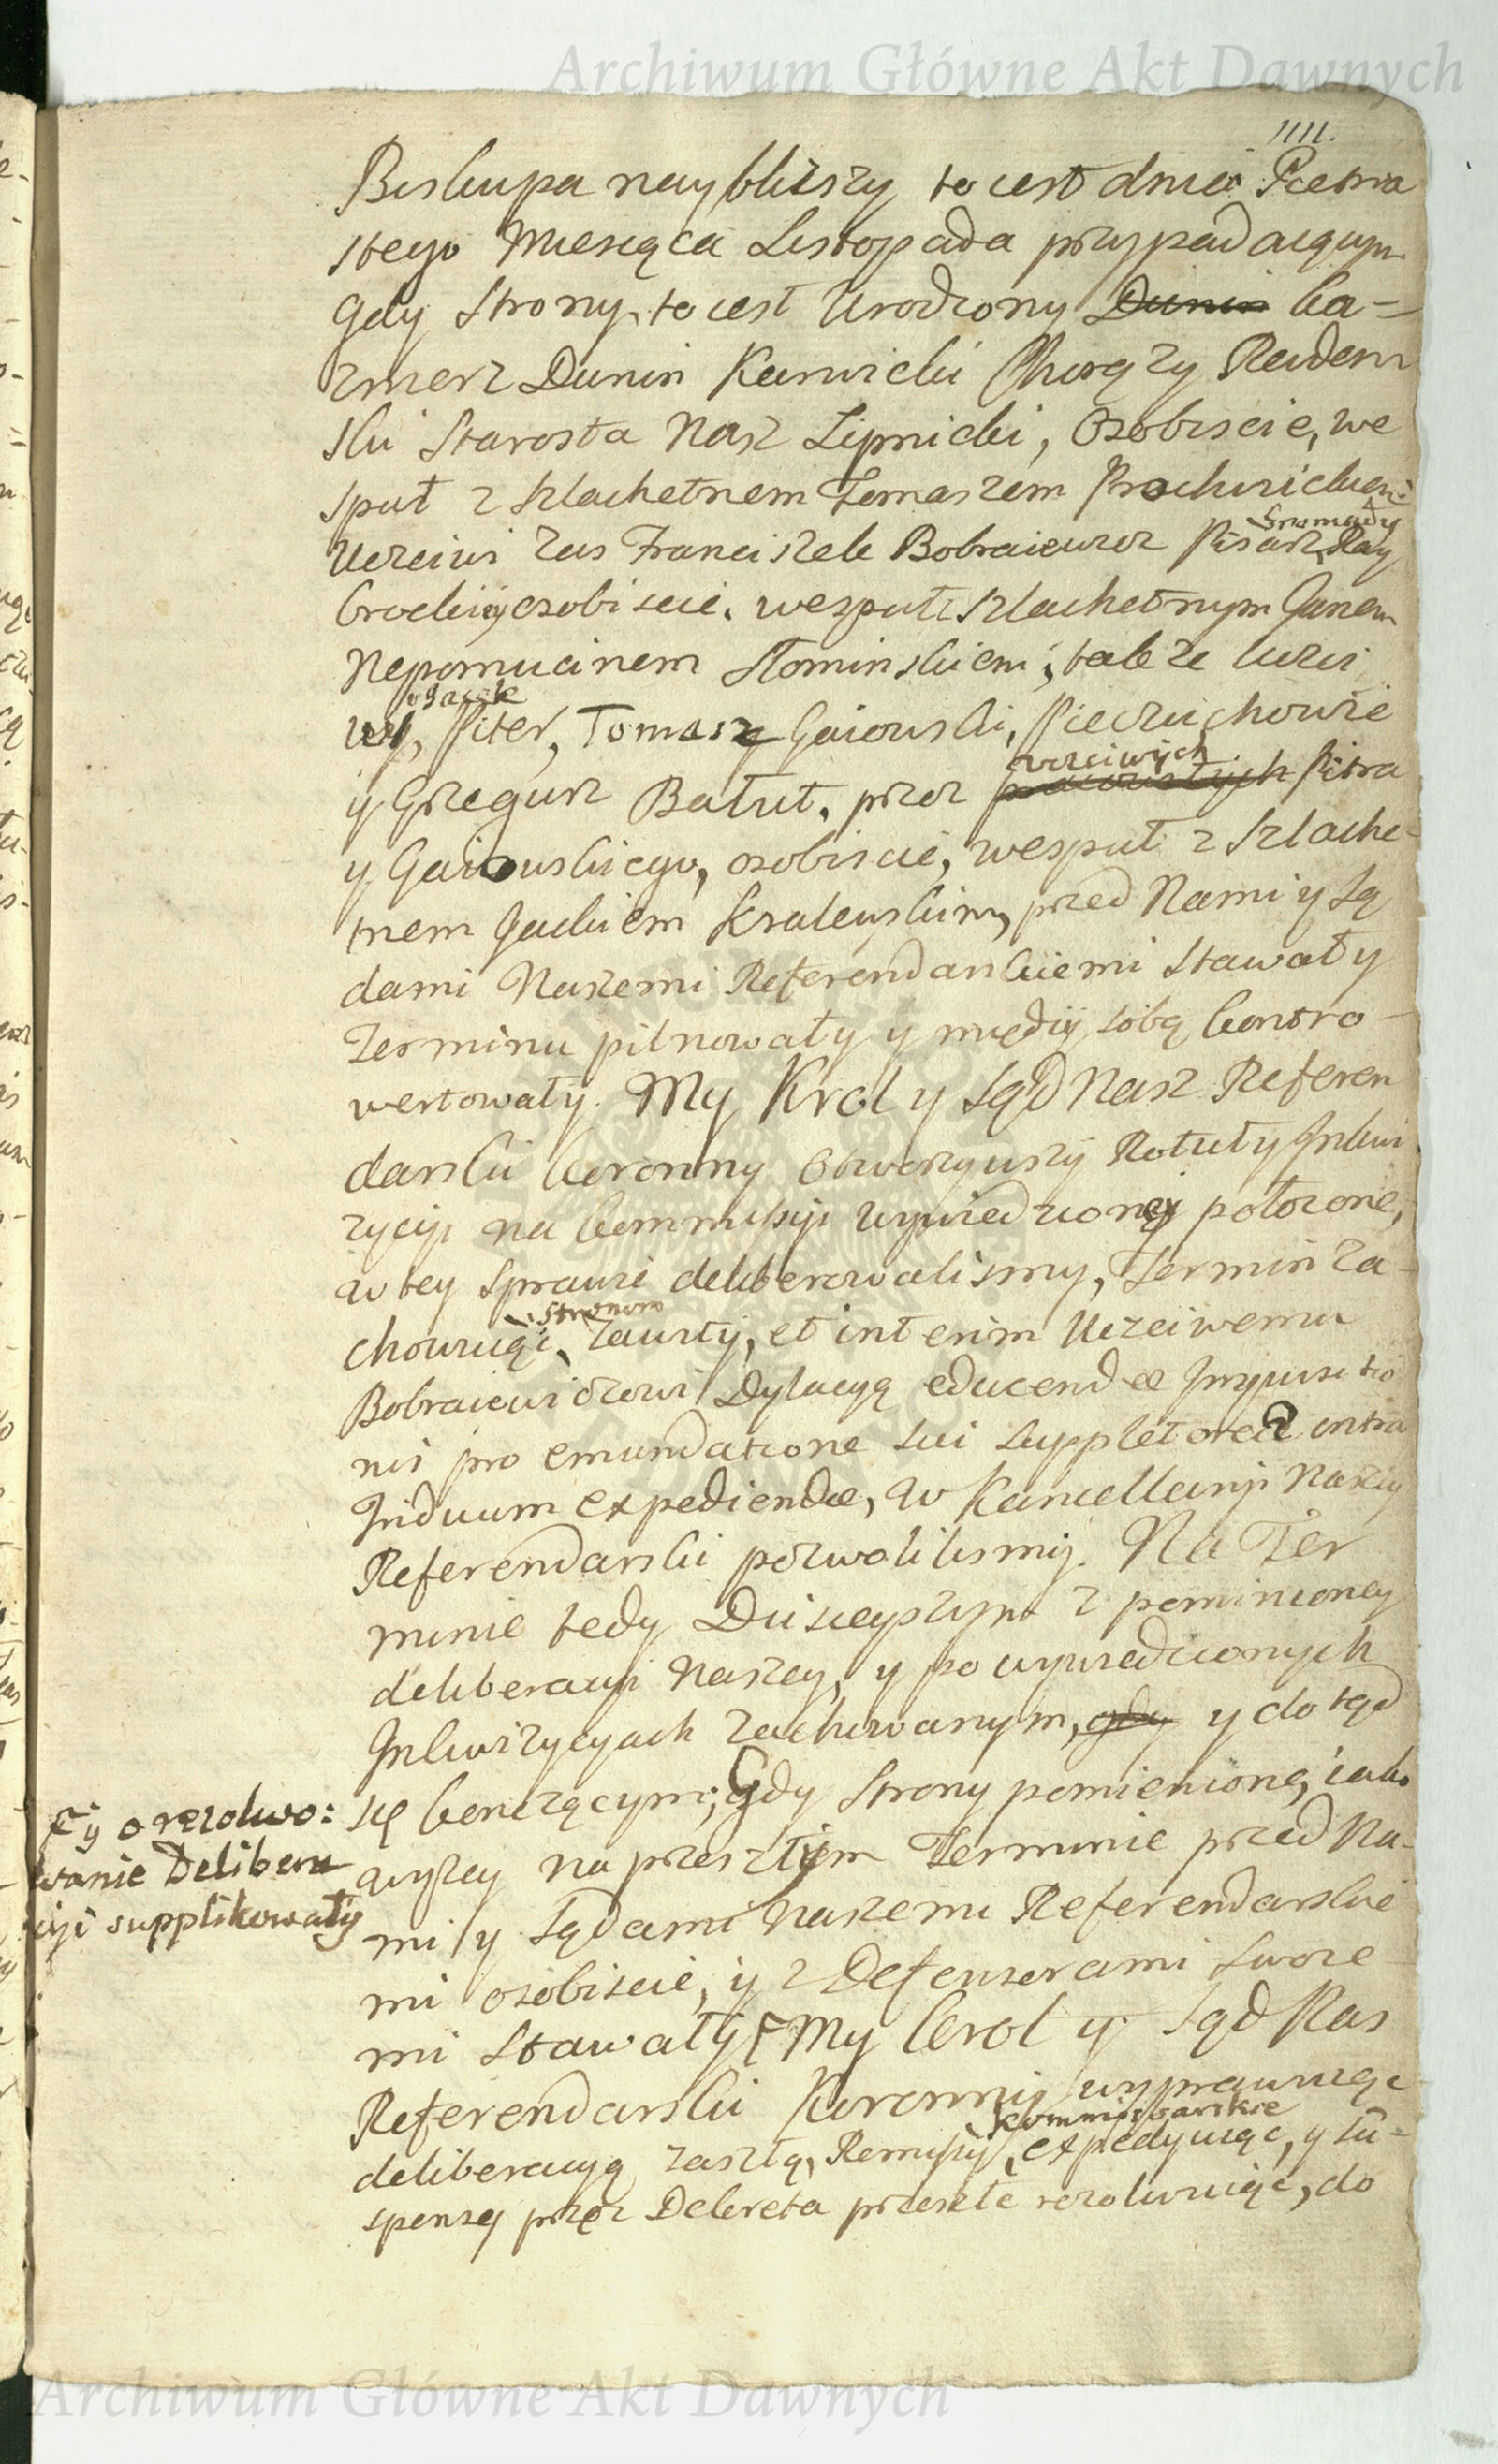 Archiwum Główne Akt Dawnych
1111.
Biskupa nayblizszy to iest dnia Pietna
stego Miesiąca Listopada przypadaiącym
Gdy Strony, to iest Urodzony Dunin Ka=
zmierz Dunin Karwicki Chorąży Radom
ski Starosta Nasz Lipnicki, Osobiscie, we
sput z Szlachetnem Tomaszem Prochnickiem:
Uczciwi zas Franciszek Bobraiewicz Pisarz Gromady Ray
brockiy osobiscie. wesputz Szlachetnym Janem
Nepomucinem Słominskiem, takze Uczci
wy, Jacek Piter, Tomasz Gaiowski, Pieczuchowie
y Grzegurz Bałut, przez uczciwych Pitra
y Gaiowskiego, osobiscie, wesput z Szlache-
tnem Jackiem Kralewskim, przed Nami y Są
dami Naszemi Referendarskiemi Stawały
Terminu pilnowały y między sobą kontro-
wertowały. My Krol y Sąd Nasz Referen
darski koronny Otworzywszy Rotuły Inkwi
zycyi na kommissyi wywiedzioney połozone,
w tey Sprawie deliberowalismy, Termin za-
chowuiąc, Stronom zawity, et interim Uczciwemu
Bobraiewiczowi Dylacyą educendæ Inquisitio
nis pro emundatione sui suppletoreæ intra
Triduum expediendæ, w Kancellaryi Naszey
Referendarski pozwolilismy. Na Ter
minie tedy Dzisieyszym z pomienioney
deliberacyi Naszey, y po wywiedzionych
Inkwizycyach zachowanym, gdy y do tąd
się konczącym; Gdy Strony pomienione, iako
wyzey na przeszłym Terminie przed Na-
mi y Sądami Naszemi Referendarskie
mi osobiscie, y z Defensorami Swoie-
mi Stawały My krol y Sąd Nas
Referendarski Koronny wyprawuiąc
deliberacyą zaszłą, Remissy Kommissarskie expedyuiąc, y su=
spensę przez Dekreta przeszłe rezolwuiąc, do
y o rezolwo:
wanie Delibera
cyi supplikowały
Archiwum Główne Akt Dawnych